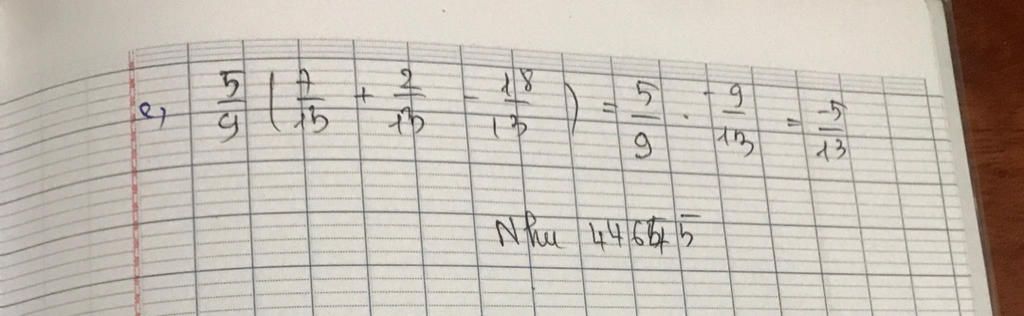 e, 5/9 ( 7/13 + 2/13 - 18/13 ) = 5/9 . -9/13 = -5/13
Nhu